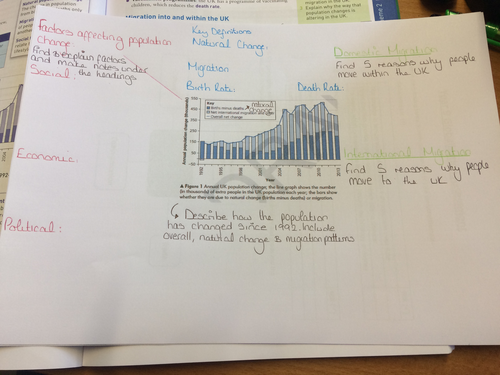 which reduces the death rate.
migration into and within the UK
Factors affecting population
Change
Find & explain factors
and make notes under
the headings.
Social:
Economic:
Political:
Key Definitions
Natural Change:
Migration
Birth Rate:
Death Rate:
Key
Births minus deaths
natural change
Overall net change
Annual population change (thousands)
Year
▲ Figure 1 Annual UK population change; the line graph shows the number
(in thousands) of extra people in the UK population each year; the bars show
whether they are due to natural change (births minus deaths) or migration.
Describe how the population
has changed since 1992. Include
overall, natural change & migration patterns
Domestic Migration
Find 5 reasons why people
move within the UK
International Migration
Find 5 reasons why people
move to the UK